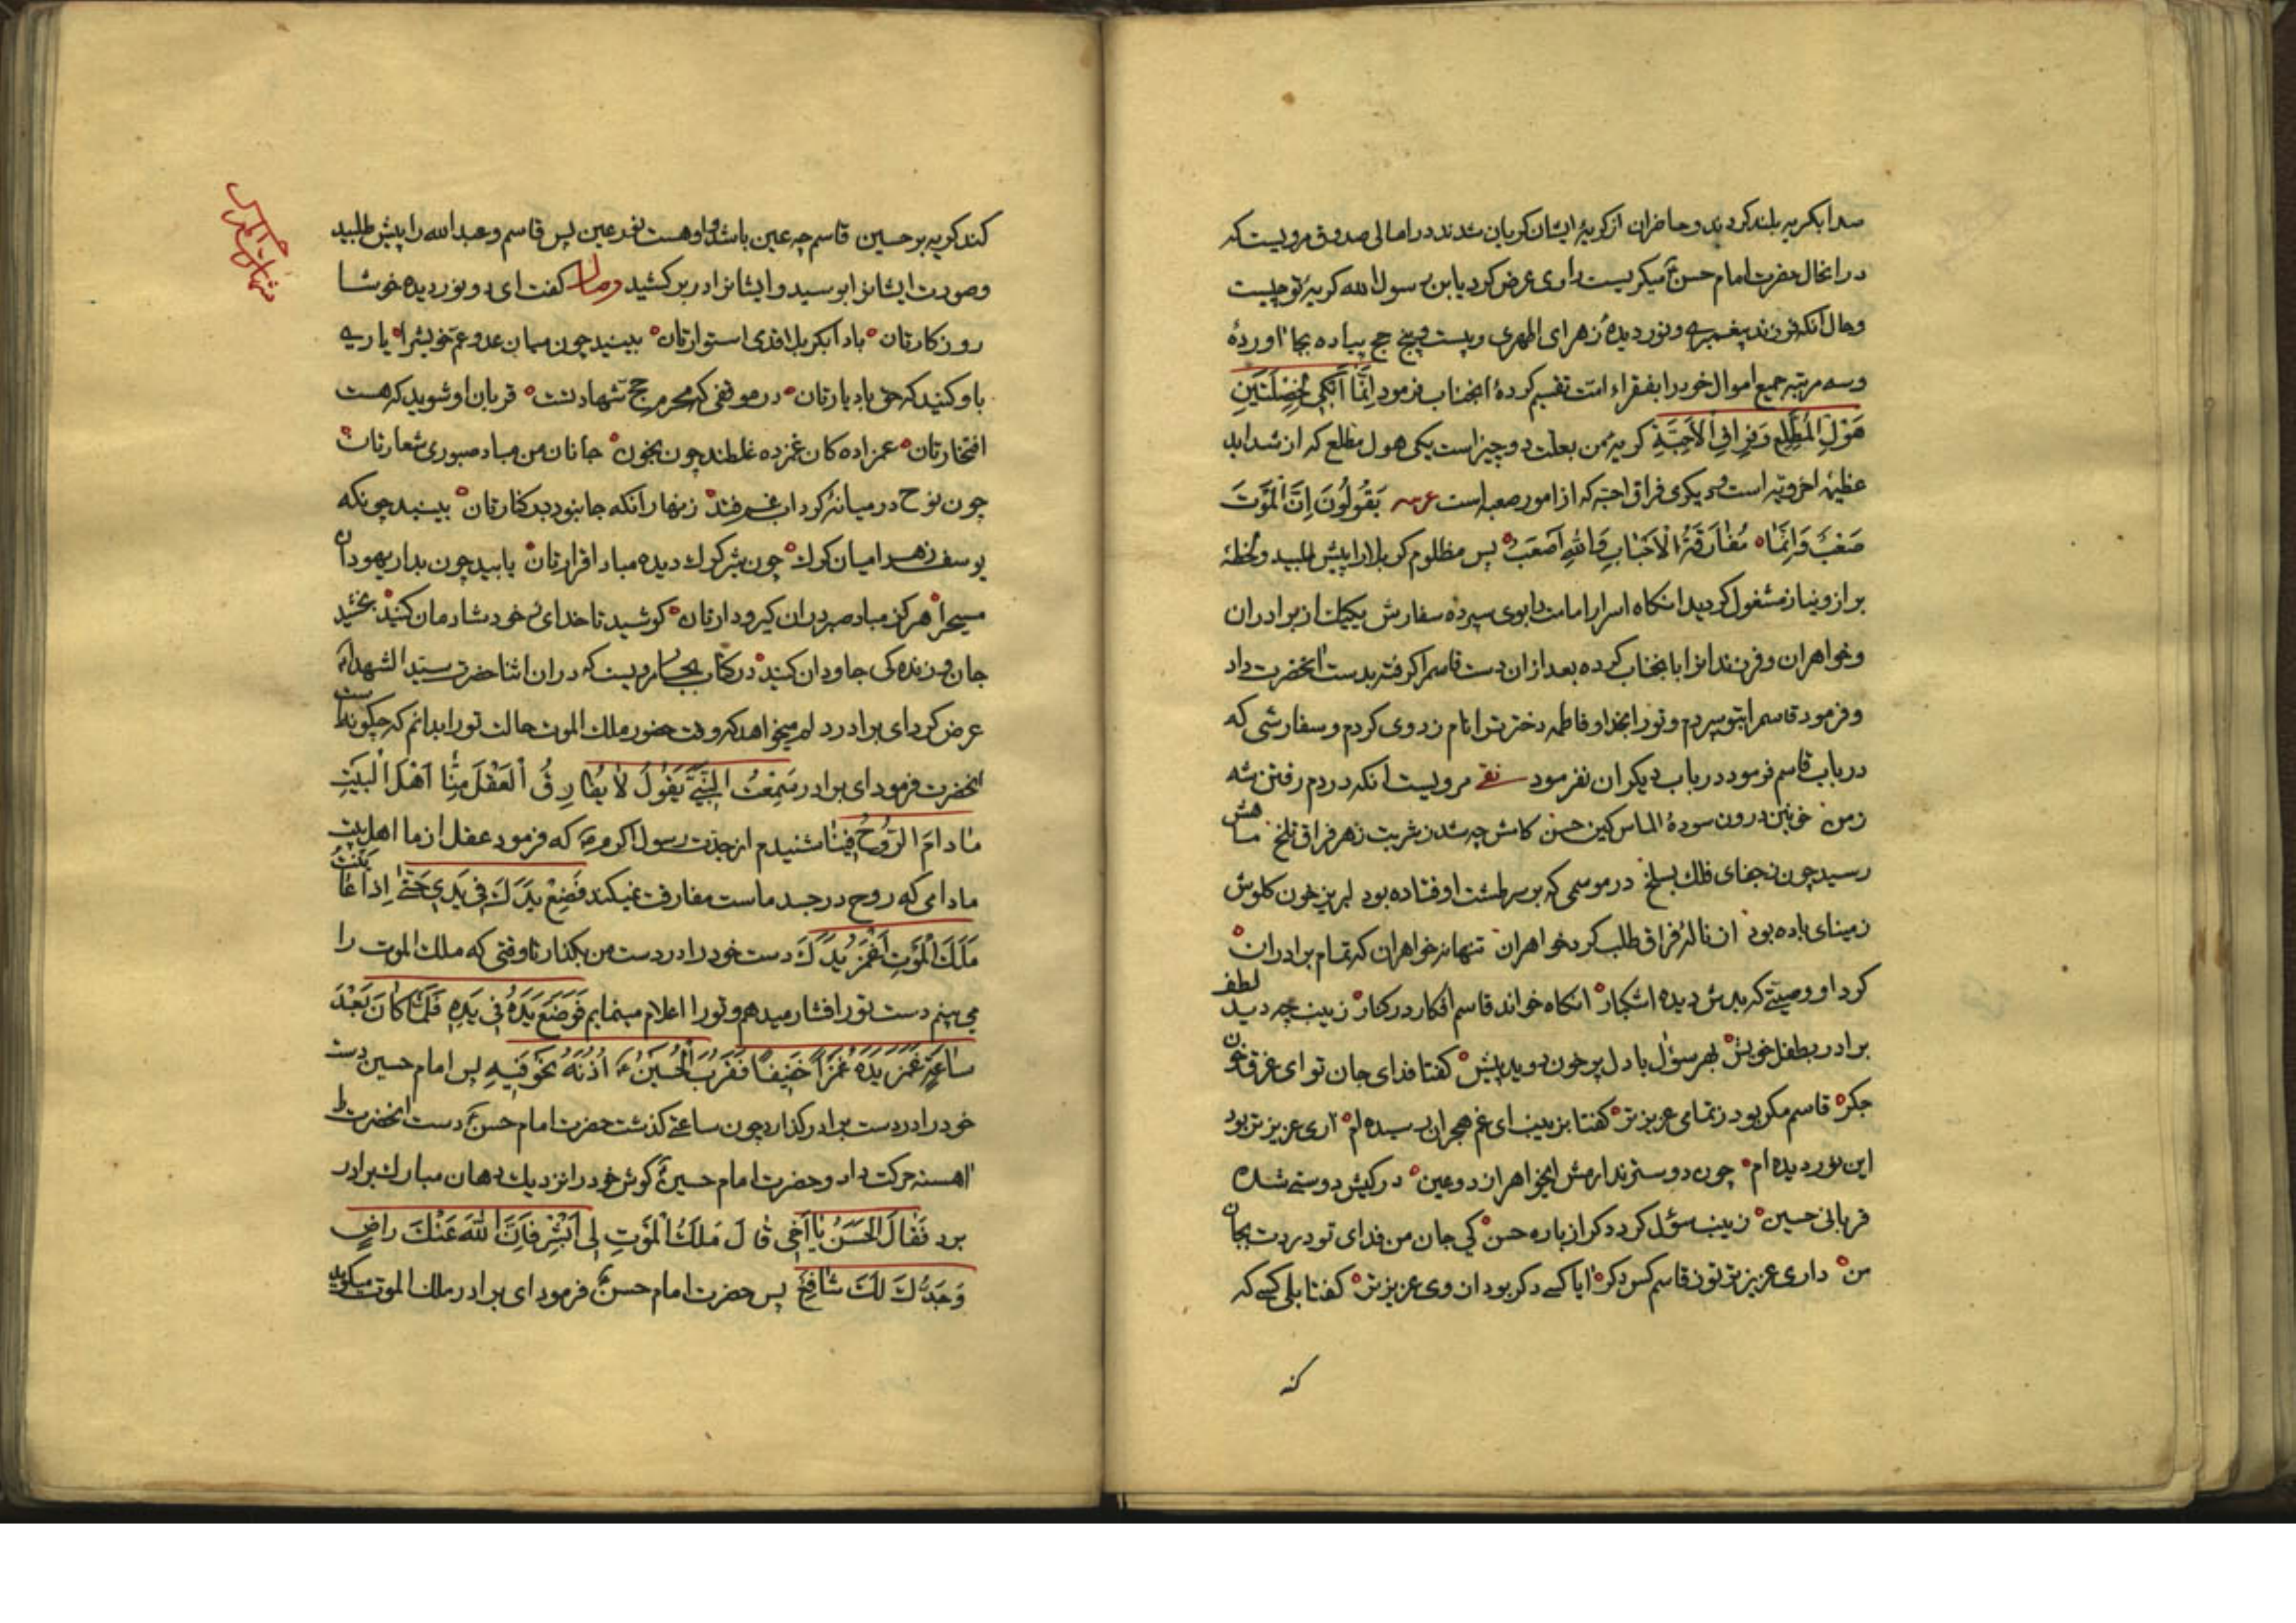 صدا بکریه بلند کردند و حاضران از کریهٔ ایشان کریان شدند در امالی صدوق مرویست که
در انحال حضرت امام حسن ع میکریست راوی عرض کرد یابن رسول الله کریهٔ تو چیست
و حال انکه فرزند پیغمبری و نور دیدهٔ زهرای اطهری و بیست و پنج حج پیاده بجا اوردهٔ
و سه مرتبه جمیع اموال خود را بفقراء امت تقسیم کردهٔ انجناب فرمود اِنَّمَا اَبْکِی لِخِصْلَتَیْنِ
هَوْلِ الْمُطَّلَعِ وَ فِرَاقِ الْاَحِبَّةِ کریهٔ من بعلت دو چیز است یکی هول مطلع که از شداید
عظیمهٔ اخرویه است و دیکری فراق احبّه که از امور صعبه است عربیه یَقُولُونَ اِنَّ الْمَوْتَ
صَعْبٌ وَ اِنَّمَا مُفَارَقَةُ الْاَحْبَابِ وَاللّٰهِ اَصْعَبُ پس مظلوم کربلا را پیش طلبید و لحظهٔ
براز و نیاز مشغول کردید انکاه اسرار امامت را بوی سپرده سفارش یکیک از برادران
و خواهران و فرزندانرا بانجناب کرده بعد از ان دست قاسم را کرفته بدست انحضرت داد
و فرمود قاسم را بتو سپردم و تو را بخدا و فاطمه دخترت را نام زد وی کردم و سفارشی که
در باب قاسم فرمود در باب دیکران نفرمود مرویست انکه در دم رفتن شه
زمن خونین درون سودهٔ الماس کین حسن کامش چه شد ز شربت زهر فراق تلخ ماهش
رسید چون ز جفای فلک بسلخ در موسمی که بر سر طشت او فتاده بود لبریز خون کلوش
ز مینای باده بود ان نالهٔ فراق طلب کرد خواهران تنها نه خواهران که تمام برادران
کرد او وصیتی که بدش دیده اشکبار انکاه خواند قاسم افکار در کنار زینب چه دید لطف
برادر بطفل خویش بهر سؤال با دل پر خون دوید پیش کفتا فدای جان تو ای غرق خون
جکر قاسم مکر بود ز تمامی عزیزتر کفتا بزینب ای غم هجران رسیده ام اری عزیزتر بود
این نور دیده ام چون دوستر ندارمش ایخواهر از دو عین در کیش دوستی شده
قربانی حسین زینب سؤال کرد دکر از باره حسن کی جان من فدای تو دردت بجان
من داری عزیزتر تو ز قاسم کس دکر ایا کسی دکر بود از وی عزیزتر کفتا بلی کسی که
کند
کند کریه بر حسین قاسم چه عین باشد و او هست نور عین پس قاسم و عبدالله را پیش طلبید
و صورت ایشانرا بوسید و ایشانرا در بر کشید وصال کفت ای دو نور دیده خوشا
روزکارتان بادا بکربلا قدی استوارتان بینید چون میان عدو عمّ خویش را یاری
باو کنید که حق باد یارتان در موقفی که محرم حج شهادتند قربان او شوید که هست
افتخارتان عمزاده کان غمزده غلطند چون بخون جانان من مباد صبوری شعارتان
چون نوح در میانهٔ کرداب غم فتد زنهار انکه جا نبود بر کنارتان بینید چونکه
یوسف زهرا میان کرک چون شیر کرک دیده مباد اقرارتان یابید چون بدار یهودان
مسیح را هرکز مباد صبر دران کیرودارتان کوشید تا خدای خود شادمان کنید بخشید
جان و زنده کی جاودان کنید در کتاب بحار مرویست که دران اثنا حضرت سید الشهداء
عرض کرد ای برادر دلم میخواهد که وقت حضور ملک الموت حالت تو را بدانم که چکونه است
انحضرت فرمود ای برادر سَمِعْتُ النَّبِیَّ یَقُولُ لَا یُفَارِقُ الْعَقْلُ مِنَّا اَهْلَ الْبَیْتِ
مَا دَامَ الرُّوحُ فِینَا شنیدم از جدت رسول اکرم ص که فرمود عقل از ما اهل بیت
مادامی که روح در جسد ماست مفارقت نمیکند فَضَعْ یَدَكَ فِی یَدِی حَتّٰی اِذَا عَایَنْتُ
مَلَكَ الْمَوْتِ اَغْمِزُ یَدَكَ دست خود را در دست من بکذار تا وقتی که ملک الموت را
می بینم دست تو را فشار میدهم و تو را اعلام مینمایم فَوَضَعَ یَدَهُ فِی یَدِهِ فَلَمَّا کَانَ بَعْدَ
سَاعَةٍ غَمَزَ یَدَهُ غَمْزًا خَفِیفًا فَقَرَّبَ الْحُسَیْنُ ع اُذُنَهُ نَحْوَ فِیهِ پس امام حسین دست
خود را در دست برادر کذارد چون ساعتی کذشت حضرت امام حسن ع دست انحضرت را
اهسته حرکت داد و حضرت امام حسین ع کوش خود را نزدیک دهان مبارک برادر
برد فَقَالَ الْحَسَنُ یَا اَخِی قَالَ مَلَكُ الْمَوْتِ لِی اَبْشِرْ فَاِنَّ اللّٰهَ عَنْكَ رَاضٍ
وَ جَدُّكَ لَكَ شَافِعٌ پس حضرت امام حسن ع فرمود ای برادر ملک الموت میکوید